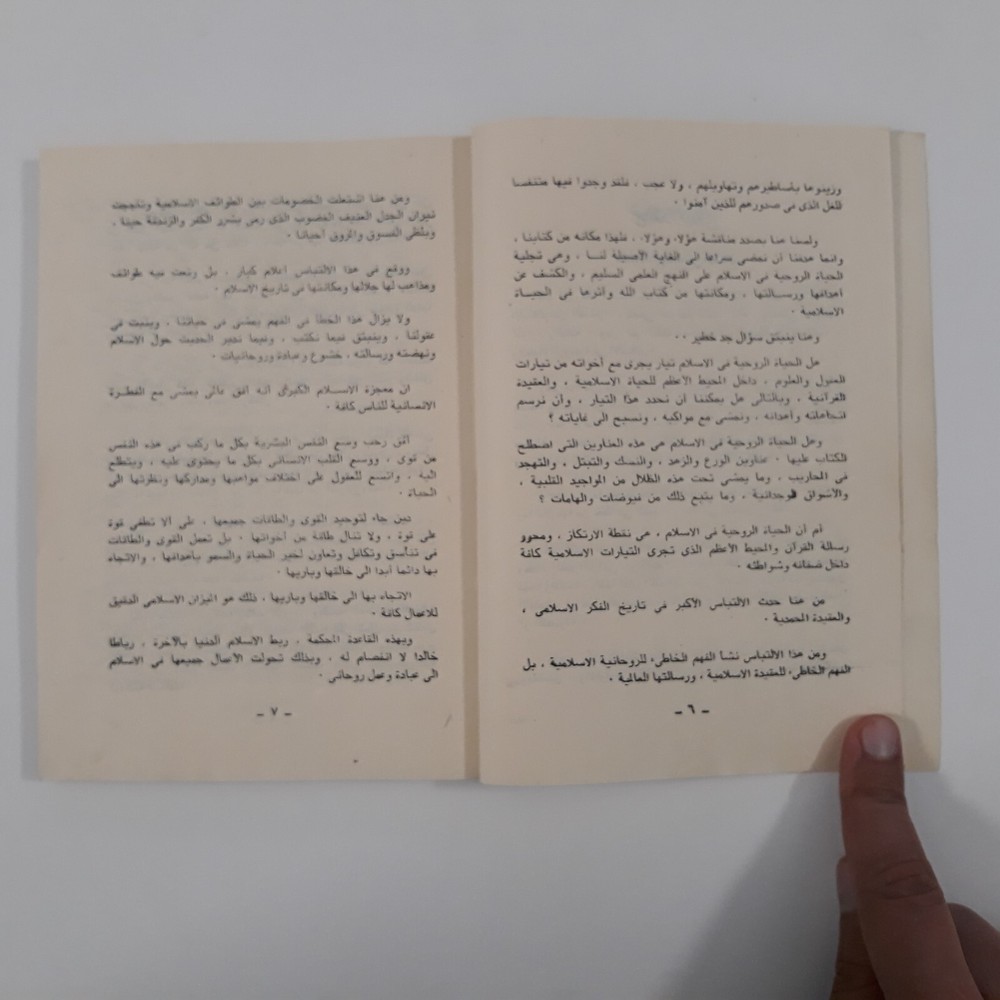 وزينوها بأساطيرهم وتهاويلهم ، ولا عجب ، فلقد وجدوا فيها متنفسا
للغل الذى فى صدورهم للذين آمنوا ·
ولسنا هنا بصدد مناقشة هؤلاء وهؤلاء ، فلهذا مكانه من كتابنا ،
وانما هدفنا أن نمضى سراعا الى الغاية الأصيلة لنا ، وهى تجلية
الحياة الروحية فى الاسلام على النهج العلمى السليم ، والكشف عن
أهدافها ورسالتها ، ومكانتها من كتاب الله وأثرها فى الحياة
الاسلامية ·
وهنا ينبثق سؤال جد خطير · ·
هل الحياة الروحية فى الاسلام تيار يجرى مع أخواته من تيارات
العقول والعلوم ، داخل المحيط الأعظم للحياة الاسلامية ، والعقيدة
القرآنية ، وبالتالى هل يمكننا أن نحدد هذا التيار ، وأن نرسم
اتجاهاته وأهدافه ، ونمضى مع مواكبه ، ونسبح الى غاياته ؟
وهل الحياة الروحية فى الاسلام هى هذه العناوين التى اصطلح
الكتاب عليها · عناوين الورع والزهد ، والنسك والتبتل ، والتهجد
فى المحاريب ، وما يمشى تحت هذه الظلال من المواجيد القلبية ،
والأشواق الوجدانية ، وما يتبع ذلك من فيوضات والهامات ؟
أم أن الحياة الروحية فى الاسلام ، هى نقطة الارتكاز ، ومحور
رسالة القرآن والمحيط الأعظم الذى تجرى التيارات الاسلامية كافة
داخل ضفافه وشواطئه ·
من هنا حدث الالتباس الأكبر فى تاريخ الفكر الاسلامى ،
والعقيدة المحمدية ·
ومن هذا الالتباس نشأ الفهم الخاطىء للروحانية الاسلامية ، بل
الفهم الخاطىء للعقيدة الاسلامية ، ورسالتها العالمية ·
ـ ٦ ـ
ومن هنا اشتعلت الخصومات بين الطوائف الاسلامية وتأججت
نيران الجدل العنيف الغضوب الذى رمى بشرر الكفر والزندقة حينا ،
وبلظى الفسوق والمروق أحيانا ·
ووقع فى هذا الالتباس أعلام كبار ، بل وقعت فيه طوائف
ومذاهب لها جلالها ومكانتها فى تاريخ الاسلام ·
ولا يزال هذا الخطأ فى الفهم يمشى فى حياتنا ، وينبث فى
عقولنا ، وينبثق فيما نكتب ، وفيما ندير الحديث حول الاسلام
ونهضته ورسالته ، خشوع وعبادة وروحانيات ·
ان معجزة الاسلام الكبرى أنه أفق عالى يمشى مع الفطرة
الانسانية للناس كافة ·
أفق رحب وسع النفس البشرية بكل ما ركب فى هذه النفس
من قوى ، ووسع القلب الانسانى بكل ما يحتوى عليه ، ويتطلع
اليه ، واتسع للعقول على اختلاف مواهبها ومداركها ونظرتها الى
الحياة ·
دين جاء لتوحيد القوى والطاقات جميعها ، على ألا تطغى قوة
على قوة ، ولا تنال طاقة من أخواتها · بل تعمل القوى والطاقات
فى تناسق وتكافل وتعاون لخير الحياة والسمو بأهدافها ، والاتجاه
بها دائما أبدا الى خالقها وباريها ·
الاتجاه بها الى خالقها وباريها ، ذلك هو الميزان الاسلامى الدقيق
للأعمال كافة ·
وبهذه القاعدة المحكمة ، ربط الاسلام الدنيا بالآخرة ، رباطا
خالدا لا انفصام له ، وبذلك تحولت الأعمال جميعها فى الاسلام
الى عبادة وعمل روحانى ·
ـ ٧ ـ